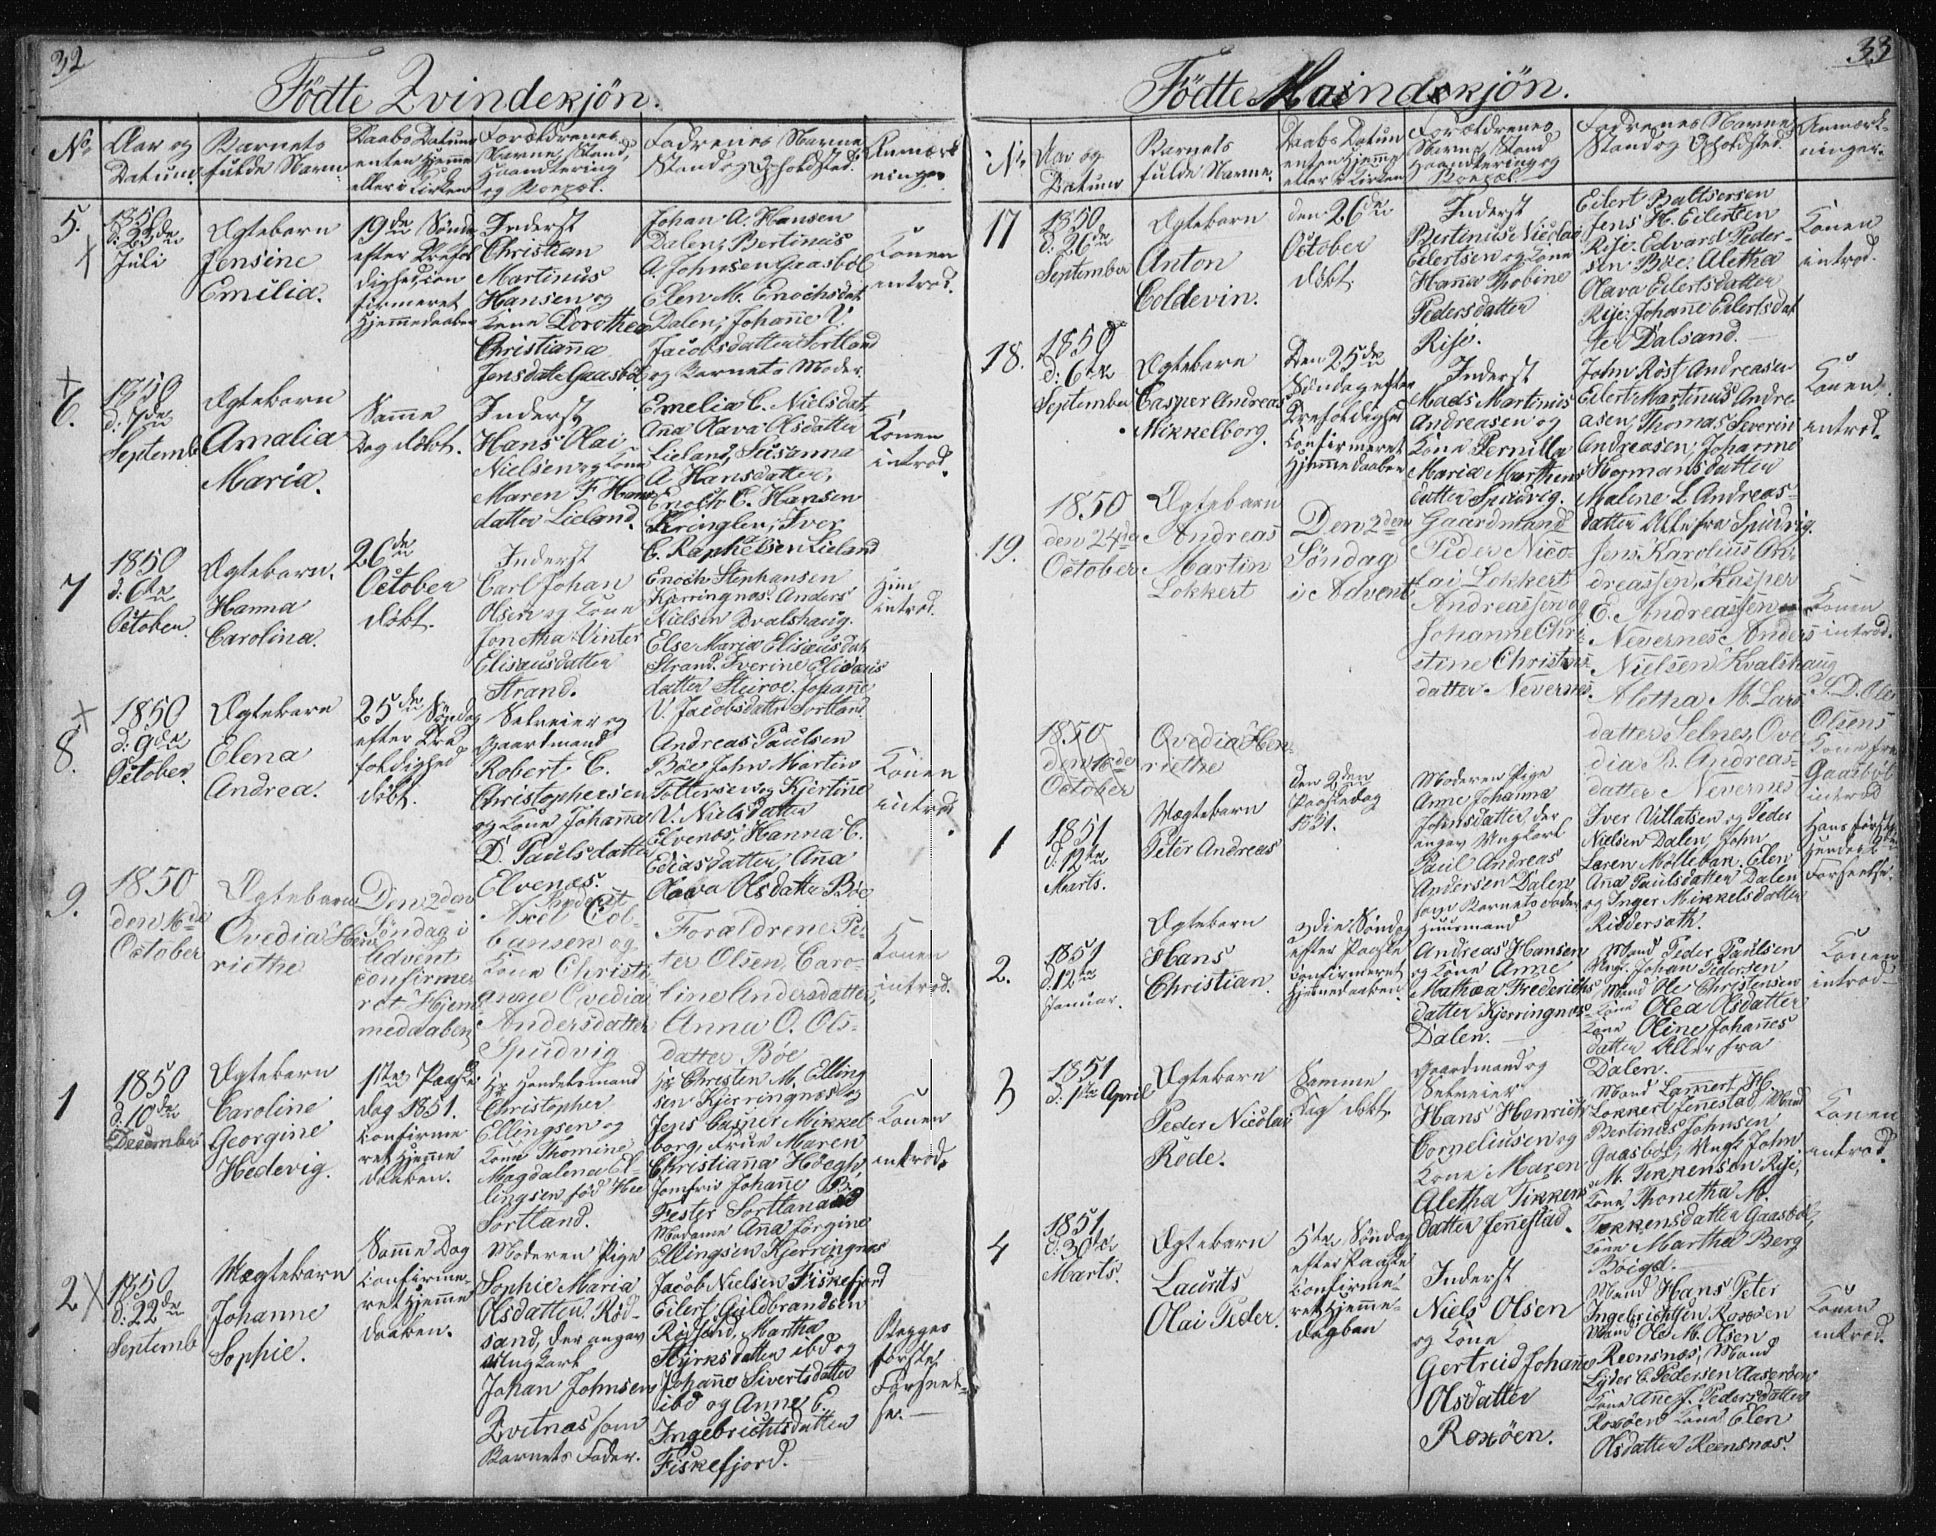 32
Födte Qvindekjön.
No.
Aar og
Datum.
Barnets
fulde Navn
Daabs Datum
enten hjemme
eller i Kirken
Forældrenes
Navne, Stand,
Haandtering
og Bopæl.
Fadrenes Navne
Stand og Opholdsted.
Anmærk
ninger
5.
1850
d: 23de
Juli
Ægtebarn
Jensine
Emilia.
19de Sönd.
efter Trefol
dighed, con
firmeret
Hjemmedaaben
Inderst
Christian
Martinus
Hansen og
Kone Dorothea
Christianna
Jensdatr Gaasböl
Johan A. Hansen
Dalen; Bertinus
A. Johnsen Gaasböl
Elen M. Enochsdat
Dalen; Johanne V.
Jacobsdatter Sortland
og Barnets Moder.
Konen
introd.
6.
1850
d: 7de
Septemb
Ægtebarn
Amalia
Maria.
Samme
Dag döbt.
Inderst
Hans Olai
Nielsen og Kone
Maren F. Hans
datter Lieland.
Emelia C. Nielsdat
Ana Olava Olsdatter
Lieland, Susanna
A. Hansdatter,
Enoch C. Hansen
Kringlen, Iver
C. Raphelsen Lieland
Konen
introd.
7
1850
d: 6te
October.
Ægtebarn.
Hanna
Carolina.
26de
October
döbt.
Inderst
Carl Johan
Olsen og Kone
Jonetha Vinter
Elisæusdatter
Strand.
Enoch Stephansen
Kjerringnæs. Anders
Nielsen Kvalshaug.
Else Maria Elisæusdat
Strand. Iverine Elisæus
datter Steiroe. Johanne
V. Jacobsdatter Sortland
introd.
8.
1850
d: 9de
October.
Ægtebarn
Elena
Andrea.
25de Söndag
efter Tre
foldighed
döbt.
Selveier og
Gaardmand
Robert C.
Christophersen
og Kone Johanna
D. Paulsdatter
Elvenæs.
Andreas Paulsen
Böe, John Martin
Tollersen og Kjertine
V. Nielsdatter
Elvenæs, Hanna C.
Ediasdatter, Ana
Olava Olsdatter Böe
Konen
introd.
9.
1850
den 16de
October
Ægtebarn
Ovedia Hen
riethe
Den 2den
Söndag i
Advent
confirme
ret Hjem
meddaaben
Inderst
Axel Col
bansen og
Kone Christi
anne Ovedia
Andersdatter
Spudvig
Forældrene Pe
ter Olsen, Caro
line Andersdatter,
Anna O. Ols
datter Böe
Konen
introd.
1
1850
d: 10de
December
Ægtebarn
Caroline
Georgine
Hedevig.
1ste Paaske
dag 1851.
Confirme
ret Hjemme
daaben.
Hr Handelsmand
Christopher
Ellingsen og
Kone Thomine
Magdalena El
lingsen, föd Hee
Sortland.
Hr Christen M. Elling
sen Kjerringnæs og
Jens Casper Mikkel
borg. Frue Maren
Christianna Höegh,
Jomfru Johanne B.
Fester Sortland
Madame Ana Jörgine
Ellingsen Kjerringnæs
Konen
introd.
2
1850
d: 22de
Septemb
Uægtebarn
Johanne
Sophie.
Samme Dag
Confirme
ret Hjemme
daaben.
Moderen Pige
Sophie Maria
Olsdatter Röd
sand, der angav
Ungkarl
Johan Johnsen
Kvitnæs som
Barnets Fader.
Jacob Nielsen Fiskefjord
Eilert Guldbrandsen
Rödsand, Martha
Styrksdatter ibd og
Johanne Sivertsdatter
ibd og Anne E.
Ingebrichtsdatter
Fiskefjord.
Begges
förste
Forseel
se.
33
Födte Mandkjön.
No.
Aar og
Datum
Barnets
fulde Navne.
Daabs Datum
enten hjemme
eller i Kirken
Forældrenes
Navne, Stand
Haandtering og
Bopæl
Fadrenes Navne
Stand og Opholdsted.
Anmærk
ninger.
17
1850.
d: 26de
September
Ægtebarn
Anton
Coldevin.
den 26de
October
döbt
Inderst
Bertinus Nicolai
Eilertsen og Kone
Hanna Thobine
Pedersdatter
Rise.
Eilert Baltsersen
Jens H. Eilertsen
Rise. Edvard Peder-
sen Böe. Aletha
Olava Eilertsdatter
Rise. Johanne Eilertsdat
ter Dalsand.
Konen
introd.
18.
1850
d: 6te
September
Ægtebarn
Casper Andreas
Mikkelborg.
Den 25de
Söndag efter
Trefoldighed
Confirmeret
Hjemmedaaben
Inderst
Mads Martinus
Andreasen og
Kone Pernilla
Maria Marthins
datter Spudvig.
John Röst Andreasen
Eilert Martinus Andre
asen, Thomas Severin
Andreasen, Johanna
Hogmansdatter
Malene L. Andreas-
datter Alle fra Spudvig.
Konen
introd.
19.
1850
den 24de
October
Ægtebarn
Andreas
Martin
Lokkert
Den 2den
Söndag
i Advent
Gaardmand
Peder Nico-
lai Lokkert
Andreassen og
Johanne Chri
stine Christens
datter Nevernes
Jens Karolius An
dreassen, Kasper
E. Andreassen
Nevernes Anders
Nielsen Kvalshaug
Aletha M. Lars
datter Selnes, Ove
dia B. Andreas-
datter Nevernes
Konen
introd.
P. D. Ole
Olsens
Kone fra
Gaasböl
introd
1850
den 16de
October
Ovedia Hen-
riethe
1
1851
d: 12te
Marts.
Uægtebarn
Peter Andreas
Den 2den
Paaskedag
1851.
Moderen Pige
Anne Johanna
Johnsdatter der
angav Ungkarl
Paul Andreas
Andersen Dalen
som Barnets Fader
Iver Villatsen og Peder
Nielsen Dalen, John
Larsen Möllebak. Elen
Ana Paulsdatter Dalen
og Inger Mikkelsdatter
Riddersath.
Hans förste
hendes 2de
Forseelse.
2.
1851
d. 12te
Januar.
Ægtebarn
Hans
Christian
3die Söndag
efter Paaske
Confirmeret
Hjemmedaaben.
Huusmand
Andreas Hansen
og Kone Anne
Mathea Frederiks
datter Kjerringnæs
Dalen.
Mand Peder Paulsen
Ung. Johan Pedersen
Mand Ole Christensen
Kone Olea Olsdatter
Kone Oline Johannes
datter Aller fra
Dalen.
Konen
introd.
3
1851
d: 1te April
Ægtebarn
Peder Nicolai
Röde.
Samme
Dag döbt
Gaardmand og
Selveier
Hans Henrich
Corneliusen og
Kone Maren
Aletha Tikkens
datter Jennestad.
Mand Lamert H.
Lokkert Jennestad, Mand
Bertinus Johnsen
Gaasböl, Ungk. John
M. Tekkensen Rise,
Kone Thonetha M.
Tekkensdatter Gaasböl,
Kone Martha Berg
Böigd.
Konen
introd.
4
1851
d: 30te
Marts.
Ægtebarn
Laurits
Olai Peder.
5te Söndag
efter Paaske
Confirme-
ret Hjemme-
dagban
Inderst
Niels Olsen
og Kone
Gertrud Johanne
Olsdatter
Roxöen.
Mand Hans Peter
Ingebrichtsen Roxöen
Mand Ole M. Olsen
Reensnæs, Mand
Lyder C. Pedersen Aaseröen
Kone Ane J. Pedersdatter
Roxöen Kone Elen
Olsdatter Reensnæs.
Konen
introd.